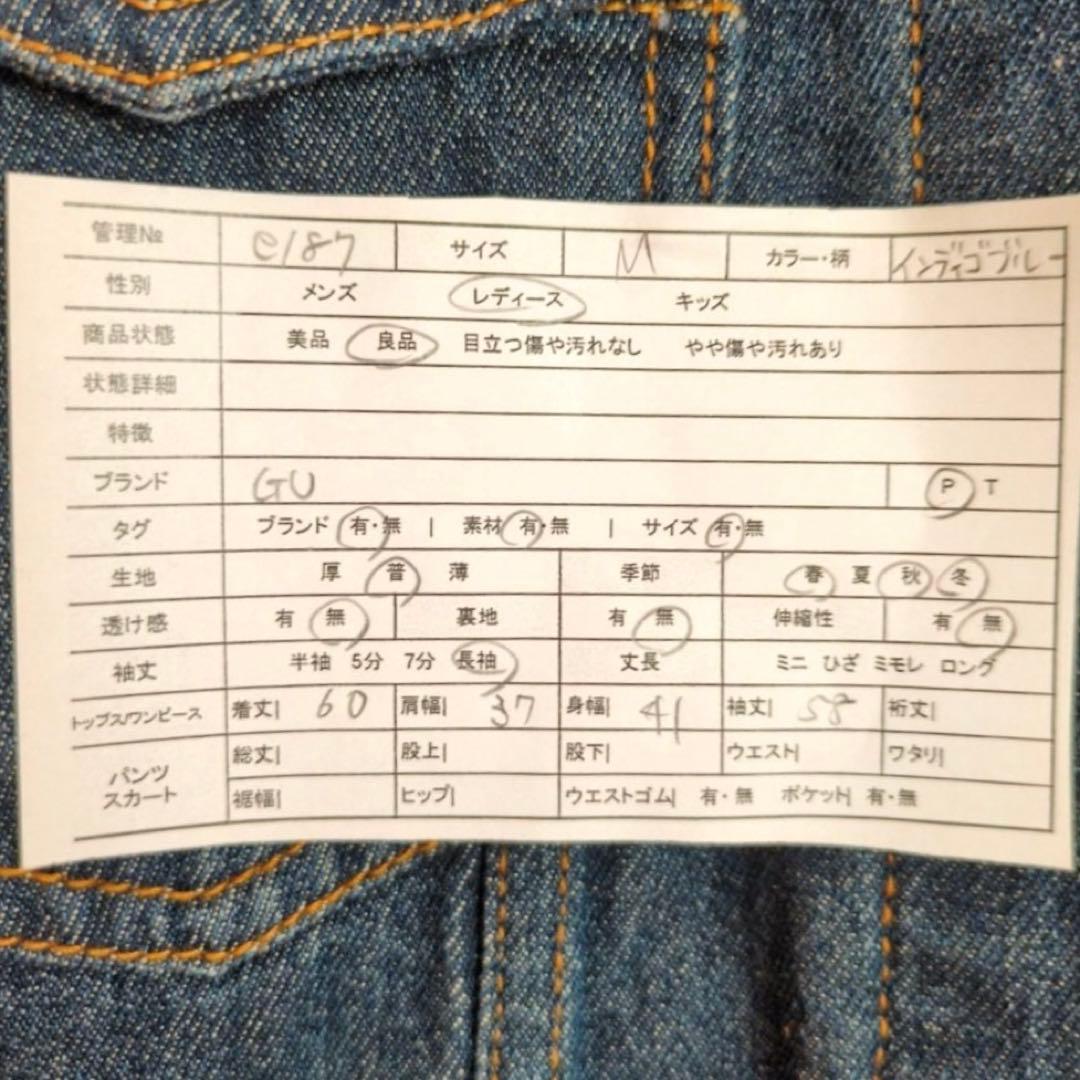 管理№ e187 サイズ M カラー・柄 インディゴブルー
性別 メンズ レディース キッズ
商品状態 美品 良品 目立つ傷や汚れなし やや傷や汚れあり
状態詳細
特徴
ブランド GU P T
タグ ブランド 有・無 | 素材 有・無 | サイズ 有・無
生地 厚 普 薄 季節 春 夏 秋 冬
透け感 有 無 裏地 有 無 伸縮性 有 無
袖丈 半袖 5分 7分 長袖 丈長 ミニ ひざ ミモレ ロング
トップス/ワンピース 着丈| 60 肩幅| 37 身幅| 41 袖丈| 58 裄丈|
パンツ スカート 総丈| 股上| 股下| ウエスト| ワタリ|
裾幅| ヒップ| ウエストゴム| 有・無 ポケット| 有・無